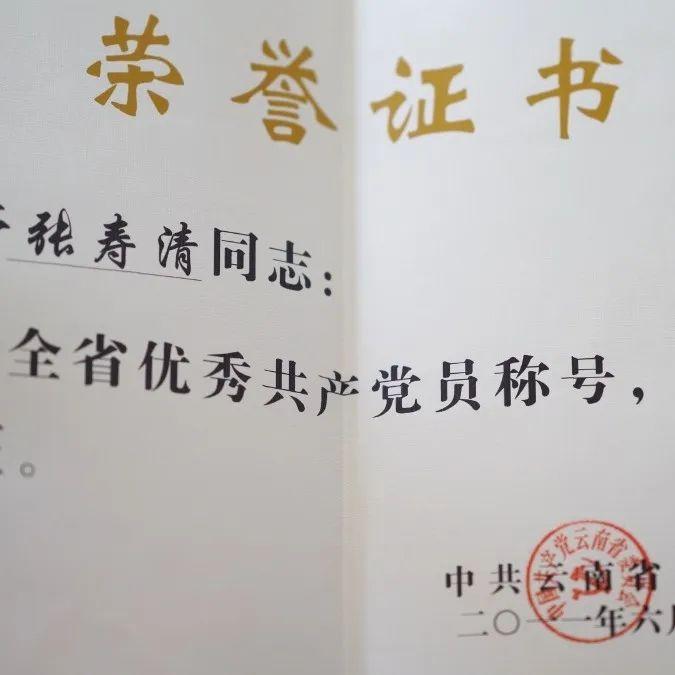 荣誉证书
予张寿清同志：
全省优秀共产党员称号，
。
中共云南省
中国共产党云南省委员会
二〇一一年六月